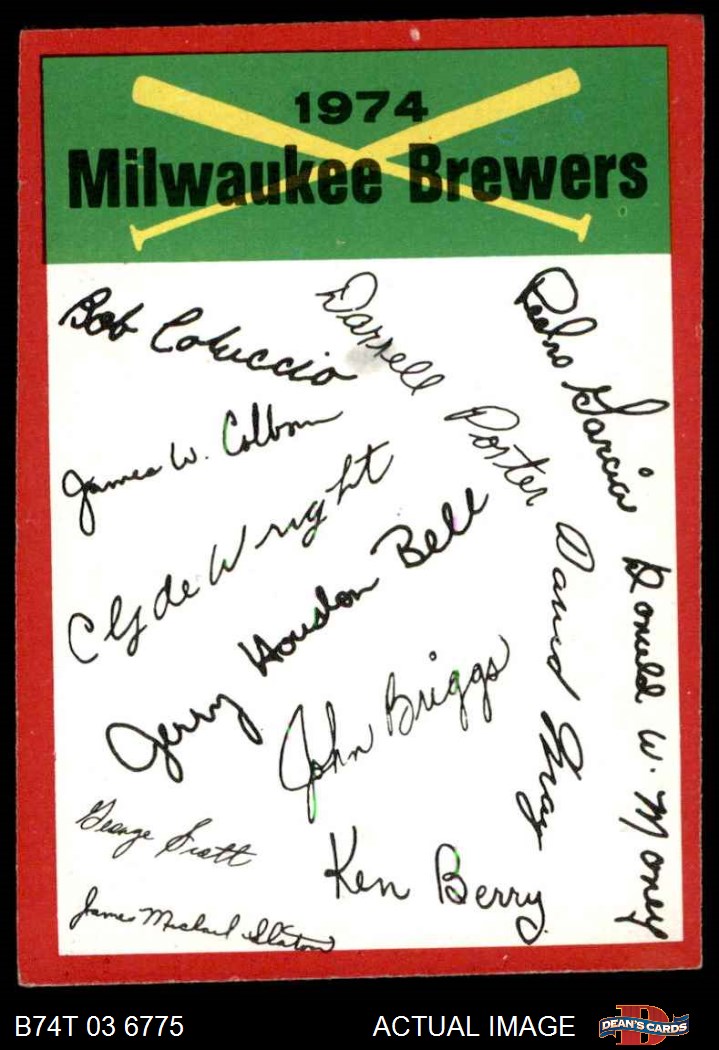 1974
Milwaukee Brewers
Bob Coluccio
Darrell Porter
Pedro Garcia
James W. Colborn
Clyde Wright
Jerry Houston Bell
David May
Donald W. Money
John Briggs
George Scott
Ken Berry
James Michael Slaton
B74T 03 6775
ACTUAL IMAGE
DEAN'S CARDS